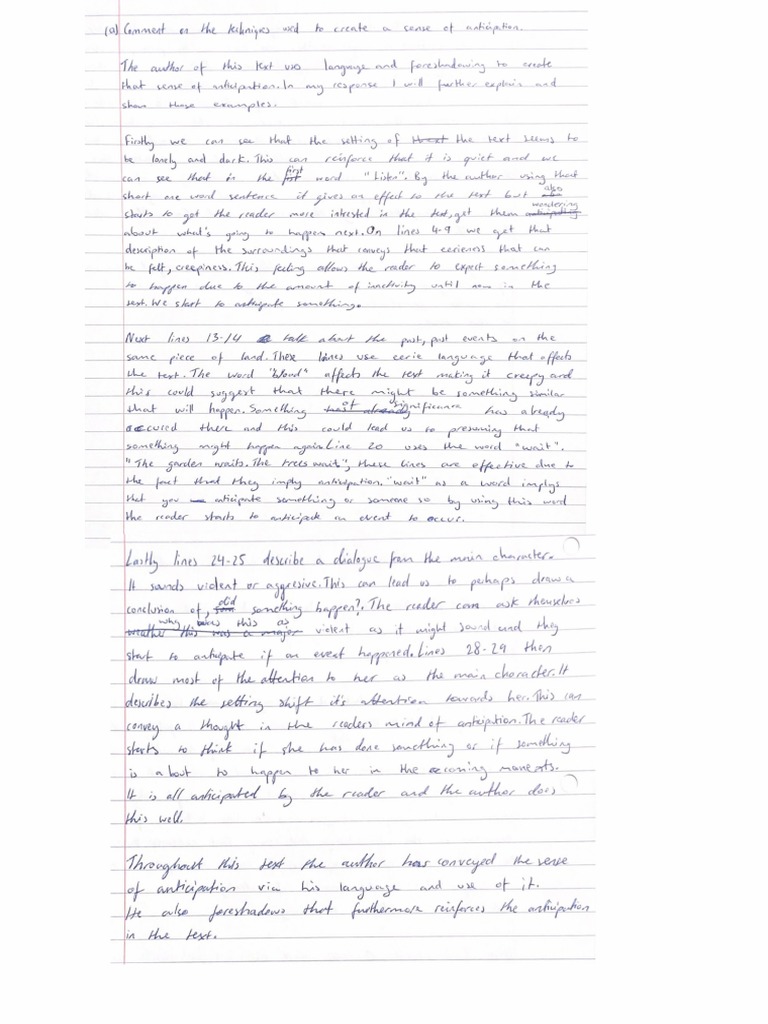 (a) Comment on the techniques used to create a sense of anticipation.
The author of this text uses language and foreshadowing to create
that sense of anticipation. In my response I will further explain and
show those examples.
Firstly we can see that the setting of the text seems to
be lonely and dark. This can reinforce that it is quiet and we
can see that in the first word "Listen". By the author using that
short one word sentence it gives an effect to the text but also
starts to get the reader more intrested in the text, get them wondering
about what's going to happen next. On lines 4-9 we get that
description of the surroundings that conveys that eerieness that can
be felt, creepiness. This feeling allows the reader to expect something
to happen due to the amount of inactivity until now in the
text. We start to anticipate something.
Next lines 13-14 talk about the past, past events on the
same piece of land. These lines use eerie language that affects
the text. The word "blood" affects the text making it creepy and
this could suggest that there might be something similar
that will happen. Something of significance has already
occured there and this could lead us to presuming that
something might happen again. Line 20 uses the word "wait".
"The garden waits. The trees wait", these lines are effective due to
the fact that they imply anticipation. "wait" as a word implys
that you anticipate something or someone so by using this word
the reader starts to anticipate an event to occur.
Lastly lines 24-25 describe a dialogue from the main character.
It sounds violent or aggressive. This can lead us to perhaps draw a
conclusion of, did something happen?. The reader can ask themselves
why this as violent as it might sound and they
start to anticipate if an event happened. Lines 28-29 then
draw most of the attention to her as the main character. It
describes the setting shift it's attention towards her. This can
convey a thought in the readers mind of anticipation. The reader
starts to think if she has done something or if something
is about to happen to her in the moments.
It is all anticipated by the reader and the author does
this well.
Throughout this text the author has conveyed the sense
of anticipation via his language and use of it.
He also foreshadows that furthermore reinforces the anticipation
in the text.